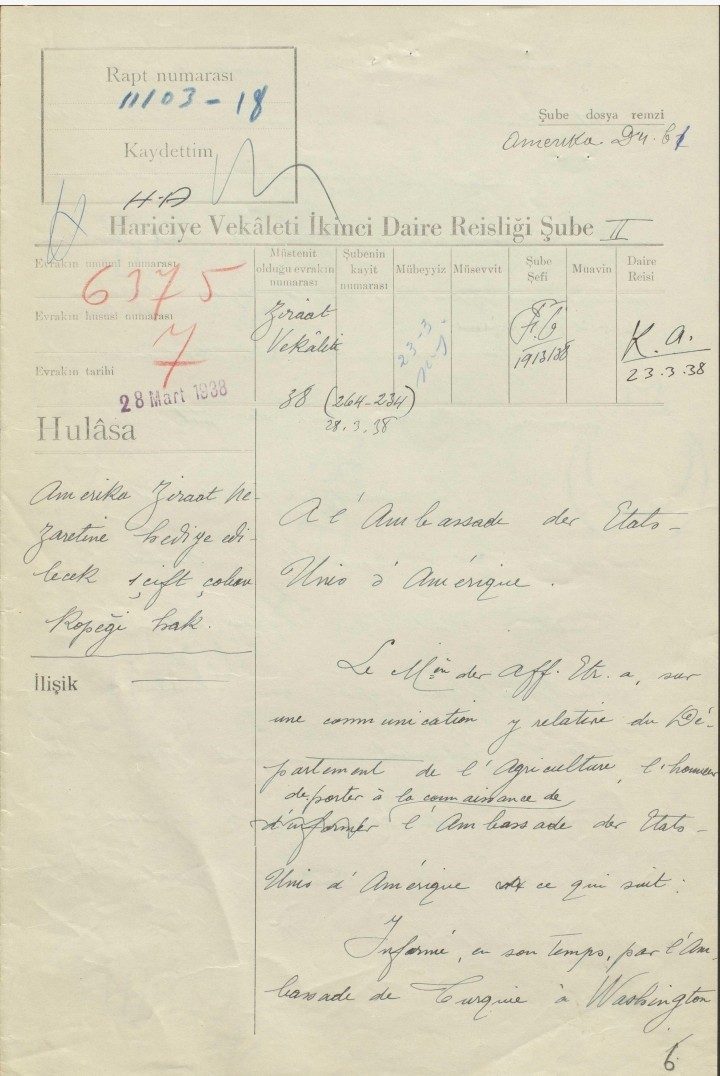 Rapt numarası
11103-18
Kaydettim
Şube dosya remzi
Amerika D4. 61
H.A
Hariciye Vekâleti İkinci Daire Reisliği Şube II
Evrakın umumî numarası
6375
Evrakın hususî numarası
7
Evrakın tarihi
28 Mart 1938
Müstenit olduğu evrakın numarası
Şubenin kayit numarası
Mübeyyiz
Müsevvit
Şube Şefi
Muavin
Daire Reisi
Ziraat
Vekâleti
23-3
F.G
19/3/38
K.a.
23.3.38
38 (264-234)
28.3.38
Hulâsa
Amerika Ziraat Ne-
zaretine hediye edi-
lecek 1 çift çoban
köpeği hak.
İlişik
A l'Ambassade des Etats-
Unis d'Amérique.
Le Mèn des Aff. Etr. a, sur
une communication y relative du Dé-
partement de l'Agriculture, l'honneur
de porter à la connaissance de
d'informer l'Ambassade des Etats-
Unis d'Amérique ce qui suit:
Informé, en son temps, par l'Am-
bassade de Turquie à Washington
6